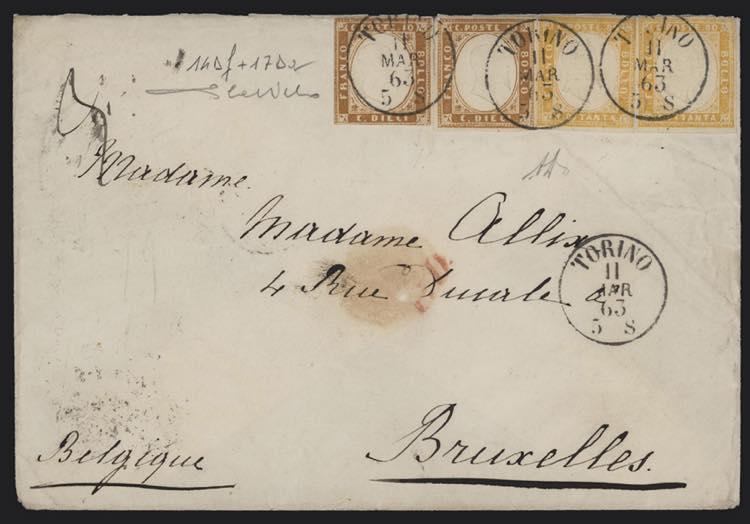 14Df + 17Da
FRANCO
C. POSTE 10
BOLLO
C. DIECI
FRANCO
C. POSTE 10
BOLLO
C. DIECI
BOLLO
OTTANTA
80
BOLLO
OTTANTA
TORINO
11
MAR
63
5
TORINO
11
MAR
63
5 S
TORINO
11
MAR
63
5 S
Madame
Madame Allix
4 Rue Ducale
TORINO
11
MAR
63
5 S
Belgique
Bruxelles.